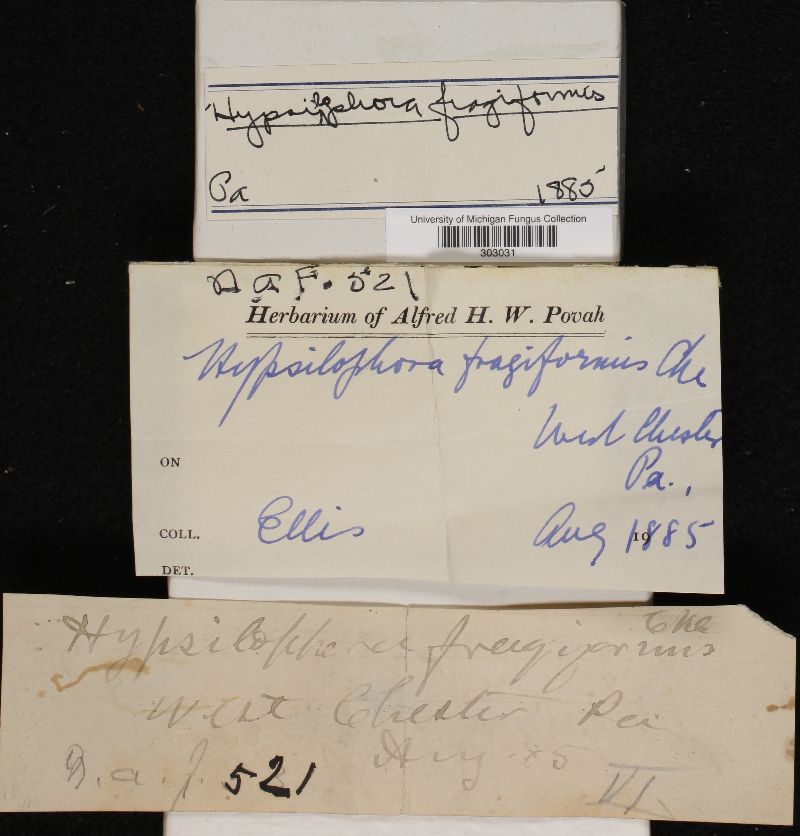 Hypsilophora fragiformis
Pa 1885
University of Michigan Fungus Collection
303031
N a F. 521
Herbarium of Alfred H. W. Povah
Hypsilophora fragiformis Cke
West Chester
Pa.,
ON
COLL. Ellis Aug 1885
DET.
Hypsilophora fragiformis Cke
West Chester Pa
Aug 85
N. a. f. 521 VI